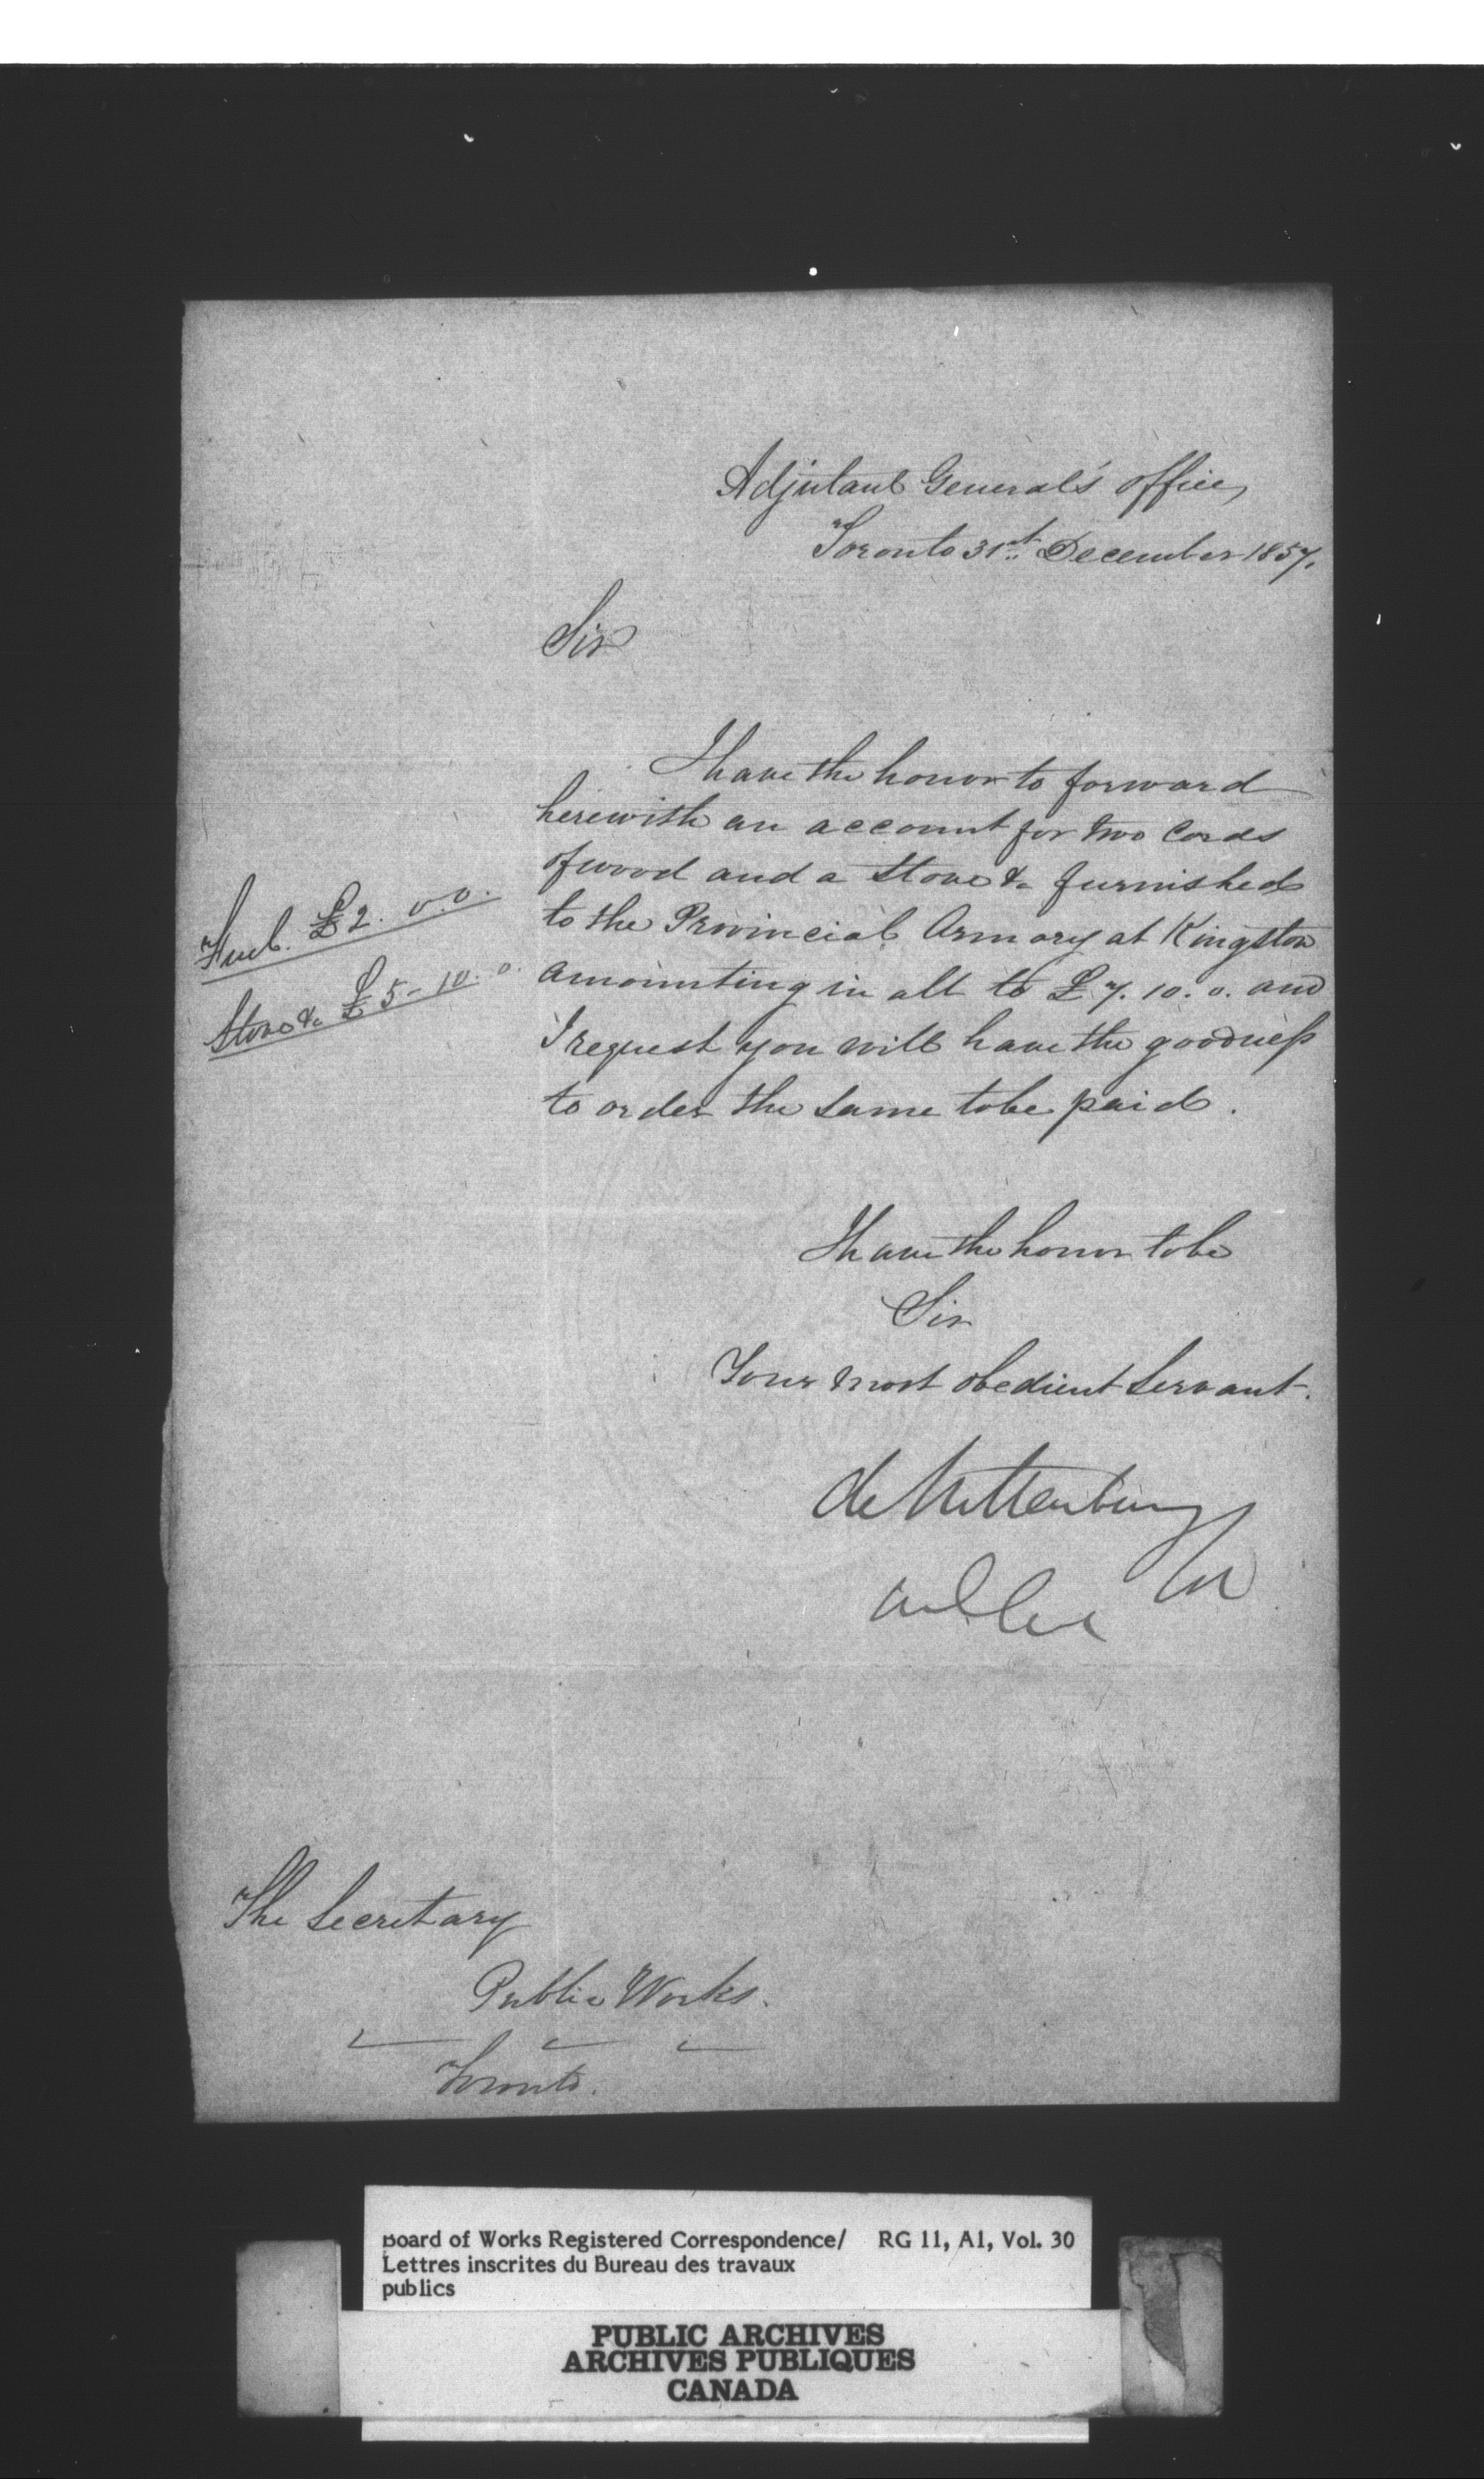 Adjutant General's office,
Toronto 31st December 1857.
Sir
I have the honor to forward
herewith an account for two Cords
of wood and a Stove &c furnished
to the Provincial Armory at Kingston
amounting in all to £7. 10. 0. and
I request you will have the goodness
to order the same to be paid.
Fuel. £2. 0. 0.
Stove &c £5 - 10. 0.
I have the honor to be
Sir
Your most obedient Servant.
de Rottenburg
Col
The Secretary
Public Works.
Toronto.
Board of Works Registered Correspondence/ RG 11, A1, Vol. 30
Lettres inscrites du Bureau des travaux
publics
PUBLIC ARCHIVES
ARCHIVES PUBLIQUES
CANADA